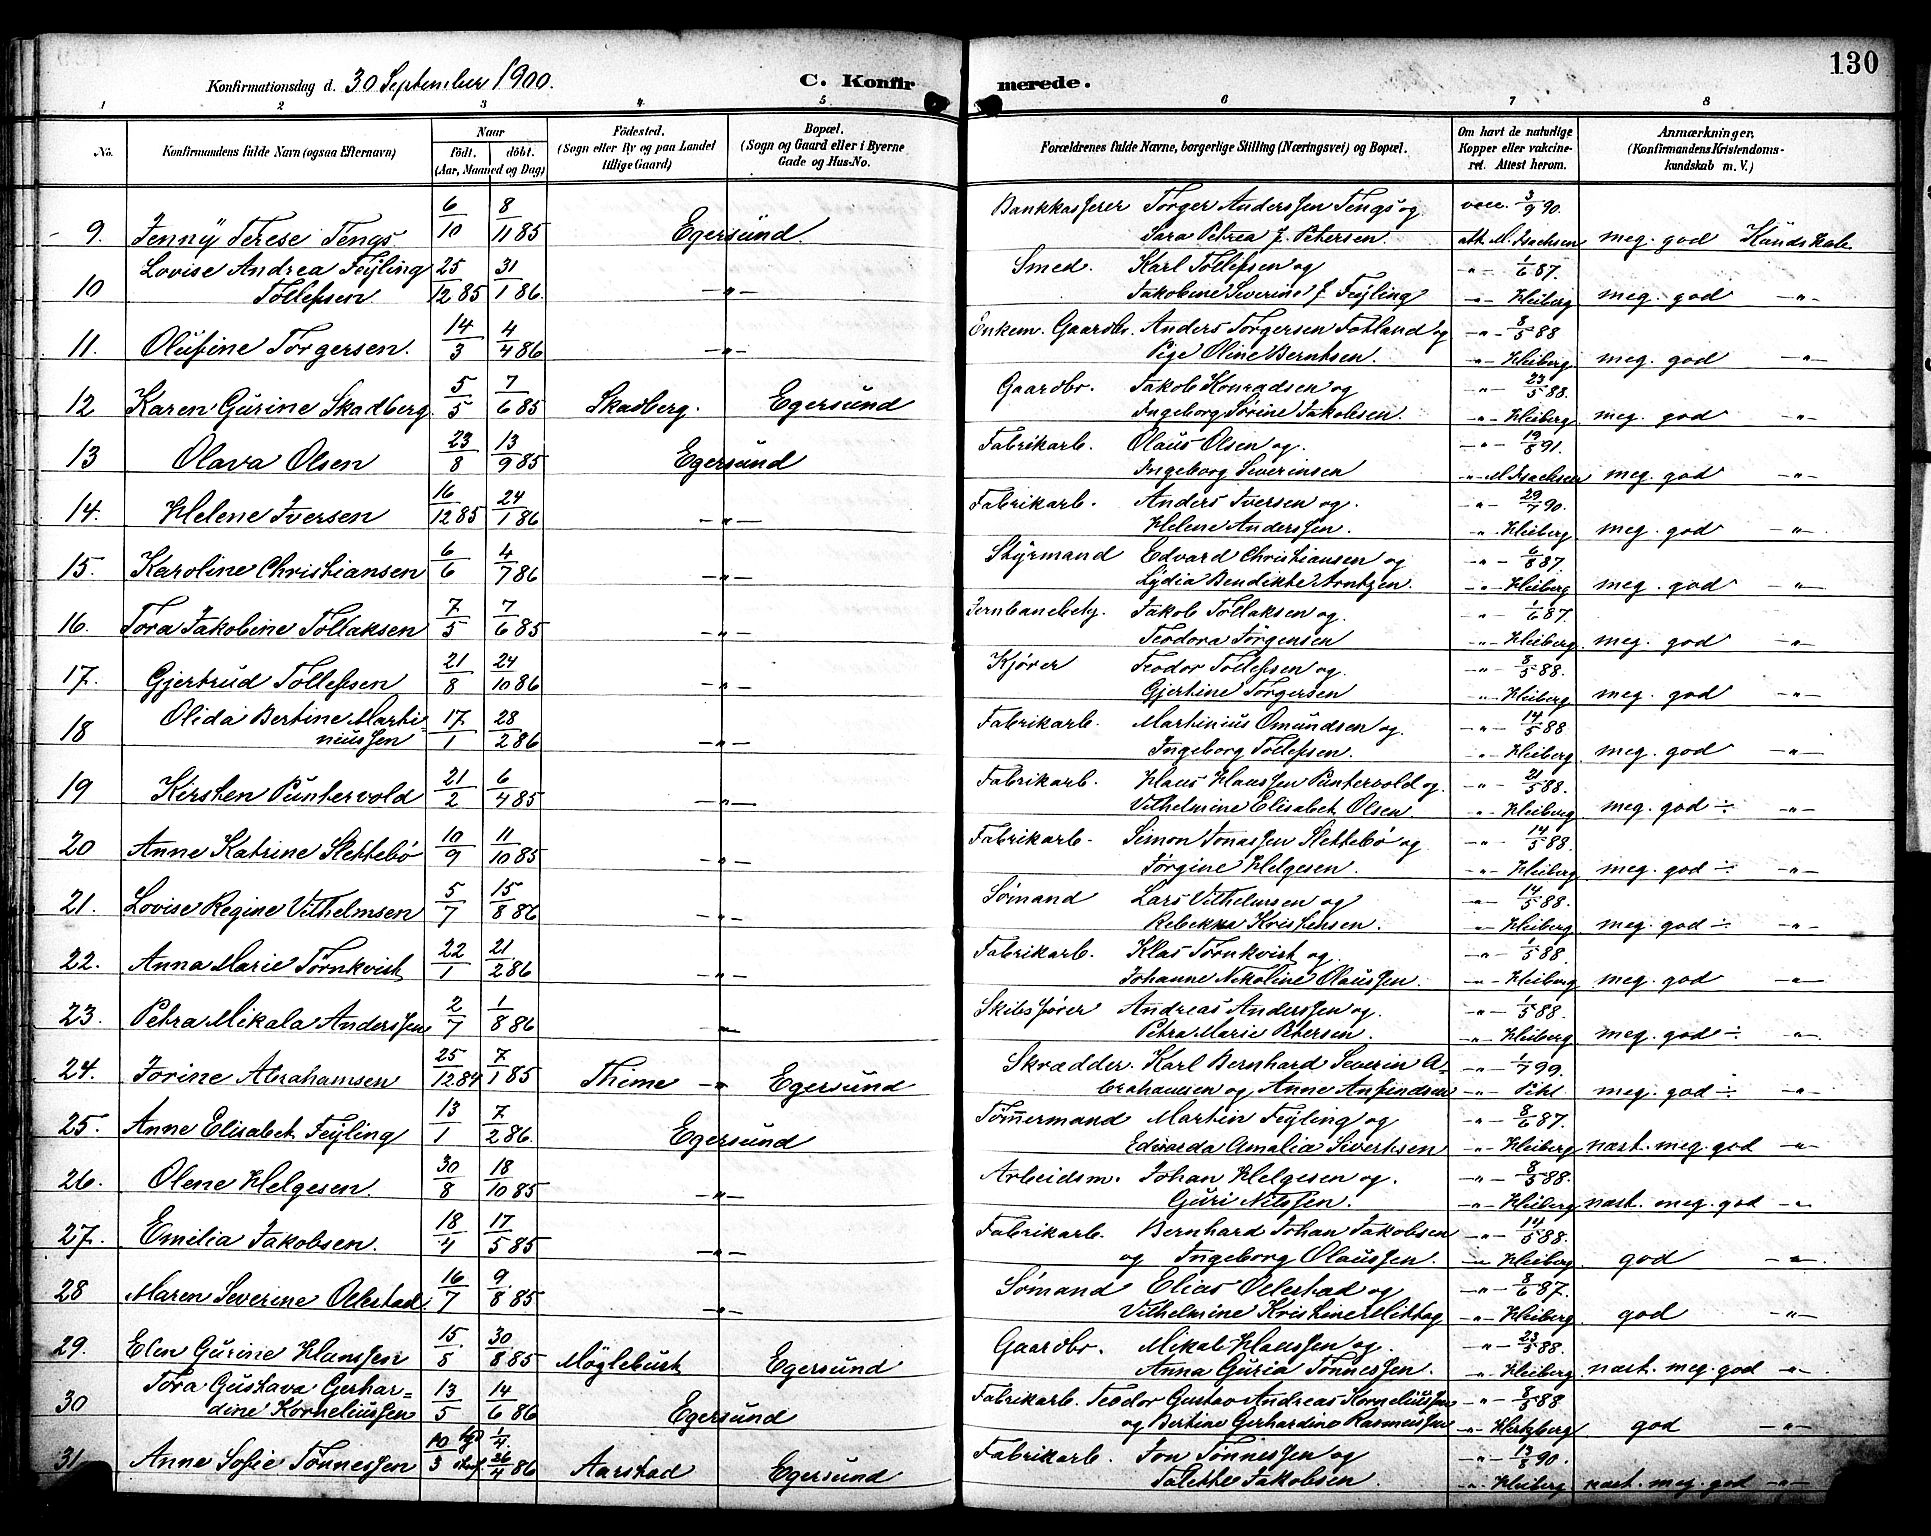 130
Konfirmationsdag d. 30 September 1900. C. Konfirmerede.
1 2 3 4. 5 6 7 8
No. Konfirmandens fulde Navn (ogsaa Efternavn) Naar födt. döbt. (Aar, Maaned og Dag) Födested. (Sogn eller By og paa Landet tillige Gaard) Bopæl. (Sogn og Gaard eller i Byerne Gade og Hus-No. Forældrenes fulde Navne, borgerlige Stilling (Næringsvei) og Bopæl. Om havt de naturlige Kopper eller vakcineret. Attest herom. Anmærkninger. (Konfirmandens Kristendomskundskab m. V.)
9. Jenny Terese Tengs 6/10 8/11 85 Egersund. Bankkasserer Torger Anderssen Tengs og vacc. 3/9 90.
Sara Petrea f. Petersen. att. M. Isachsen meg. god Kundskab
10 Lovise Andrea Fejling Tollefsen 25/12 85 31/1 86 -"- Smed. Karl Tollefsen og -"- 1/6 87.
Jakobine Severine f. Fejling -"- Kleiberg meg. god -"-
11. Olufine Torgersen. 14/3 4/4 86 -"- Enkem. Gaardbr. Anders Torgersen Fotland og -"- 8/5 88
Pige Oline Berntsen. -"- Kleiberg meg. god -"-
12 Karen Gurine Skadberg. 5/5 7/6 85 Skadberg. Egersund Gaardbr. Jakob Konradsen og -"- 23/5 88.
Ingeborg Serine Jakobsen. -"- Kleiberg meg. god -"-
13 Olava Olsen 23/8 13/9 85 Egersund Fabrikarb. Olaus Olsen og. -"- 19/8 91.
Ingeborg Severinsen -"- M. Isachsen meg. god -"-
14. Helene Iversen 16/12 85 24/1 86 -"- Fabrikarb. Anders Iversen og. -"- 29/7 90.
Helene Anderssen. -"- Kleiberg meg. god -"-
15. Karoline Christiansen 6/6 4/7 86 -"- Styrmand Edvard Christiansen og -"- 6/8 87.
Lydia Bendikte Arntzen. -"- Kleiberg meg. god -"-
16. Tora Jakobine Tollaksen 7/5 7/6 85 -"- Jernbanebetj. Jakob Tollaksen og. -"- 1/6 87.
Teodora Jørgensen -"- Kleiberg meg. god -"-
17. Gjertrud Tollefsen 21/8 24/10 86 -"- Kjører Teodor Tollefsen og. -"- 8/5 88.
Gjertine Torgersen -"- Kleiberg meg. god -"-
18 Olida Bertine Martiniussen 17/1 28/2 86 -"- Fabrikarb. Martinius Omundsen og. -"- 14/5 88
Ingeborg Tollefsen. -"- Kleiberg meg. god -"-
19 Kersten Puntervold 21/2 6/4 85 -"- Fabrikarb. Klaus Klaussen Puntervold og. -"- 21/5 88.
Vilhelmine Elisabet Olsen. -"- Kleiberg meg. god ÷ -"-
20 Anne Katrine Slettebø 10/9 11/10 85 -"- Fabrikarb. Simon Jonassen Slettebø og -"- 14/5 88.
Jørgine Helgesen. -"- Kleiberg meg. god ÷ -"-
21. Lovise Regine Vilhelmsen 5/7 15/8 86 -"- Sømand Lars Vilhelmsen og -"- 14/5 88.
Rebekka Kristensen. -"- Kleiberg meg. god ÷ -"-
22. Anna Marie Tørnkvist 22/1 21/2 86 -"- Fabrikarb. Klas Tørnkvist og. -"- 1/5 88.
Johanne Nikoline Olaussen. -"- Kleiberg meg. god -"-
23. Petra Mikala Anderssen 2/7 1/8 86 -"- Skibsfører Andreas Anderssen og. -"- 1/5 88.
Petra Marie Petersen. -"- Kleiberg meg. god ÷ -"-
24. Jorine Abrahamsen 25/12 84 7/1 85 Thime -"- Egersund Skrædder. Karl Bernhard Severin A- -"- 1/7 99.
brahamsen og Anne Anfindsen -"- Pihl. meg. god ÷ -"-
25. Anne Elisabet Fejling 13/1 7/2 86. Egersund Tømmermand Martin Fejling og -"- 8/6 87.
Edvarda Amalia Sivertsen -"- Kleiberg næst. meg. god -"-
26. Olene Helgesen. 30/8 18/10 85 -"- Arbeidsm. Johan Helgesen og. -"- 8/5 88.
Guri Nilssen. -"- Kleiberg næst. meg. god -"-
27. Emilia Jakobsen. 18/4 17/5 85 -"- Fabrikarb. Bernhard Johan Jakobsen -"- 14/5 88.
og Ingeborg Olaussen. -"- Kleiberg god -"-
28 Maren Severine Ollestad 16/7 9/8 85 -"- Sømand Elias Ollestad og -"- 8/6 87.
Vilhelmine Kristine Mittag -"- Kleiberg. god -"-
29. Elen Gurine Klaussen 15/8 30/8 85 Møgleburt Egersund Gaardbr. Mikal Klaussen og. -"- 23/5 88.
Anna Guria Tønnessen. -"- Kleiberg næst. meg. god -"-
30 Tora Gustava Gerhardine Korneliussen 13/5 14/6 86 Egersund Fabrikarb. Teodor Gustav Andreas Korneliussen -"- 8/5 88
og Bertine Gerhardine Rasmussen -"- Hertzberg god -"-
31 Anne Sofie Tønnessen 10/3 1/4. 26/4 86 Aarstad Egersund Fabrikarb. Jon Tønnessen og -"- 13/8 90.
Talette Jakobsen. -"- Kleiberg. næst. meg. god -"-